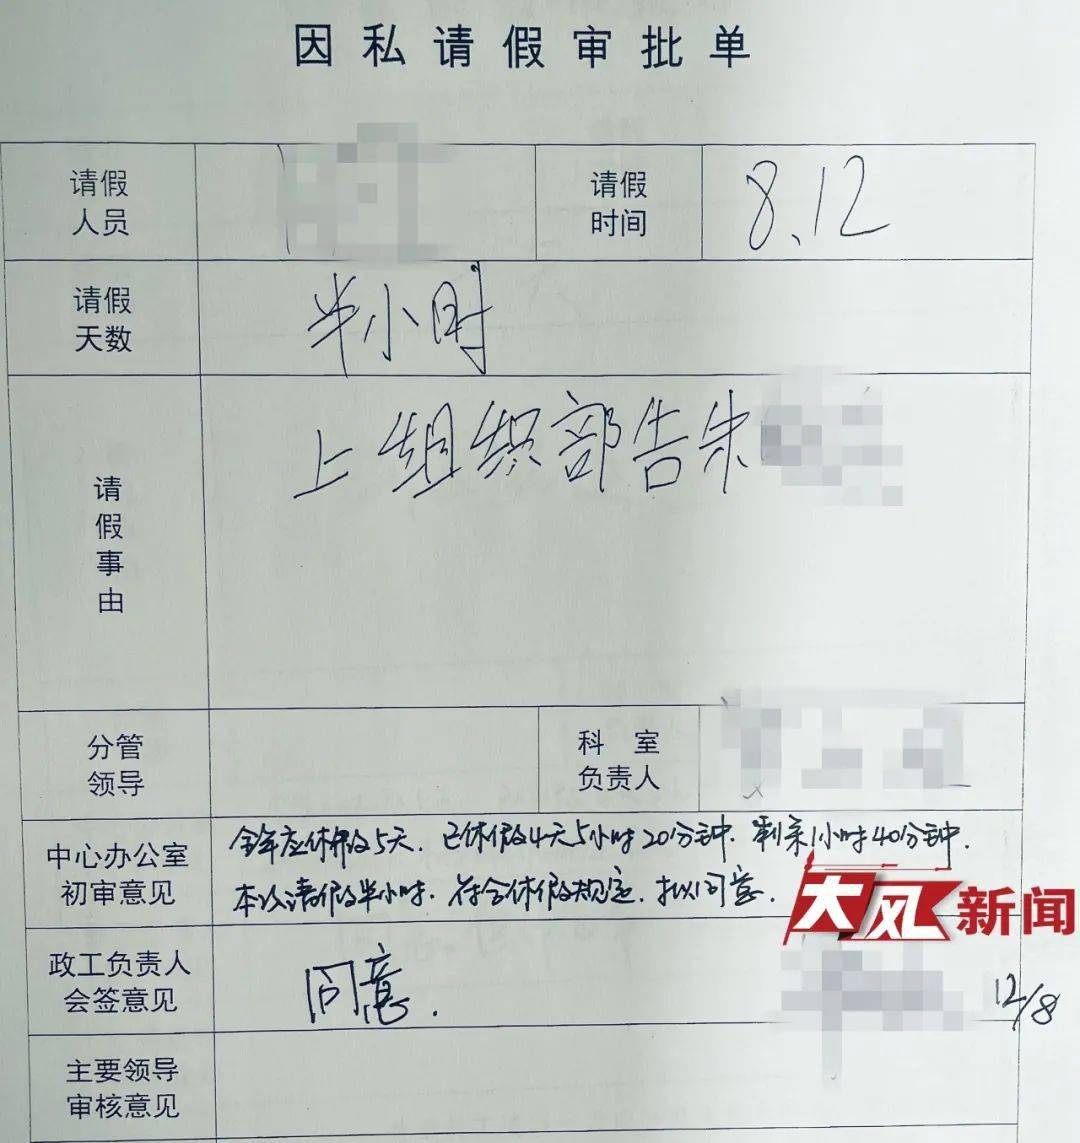 因私请假审批单
请假人员
请假时间
8.12
请假天数
半小时
请假事由
上组织部告朱
分管领导
科室负责人
中心办公室初审意见
全年应休假5天.已休假4天5小时20分钟.剩余1小时40分钟.
本次请假半小时.符合休假规定.拟同意.
大风新闻
政工负责人会签意见
同意.
12/8
主要领导审核意见